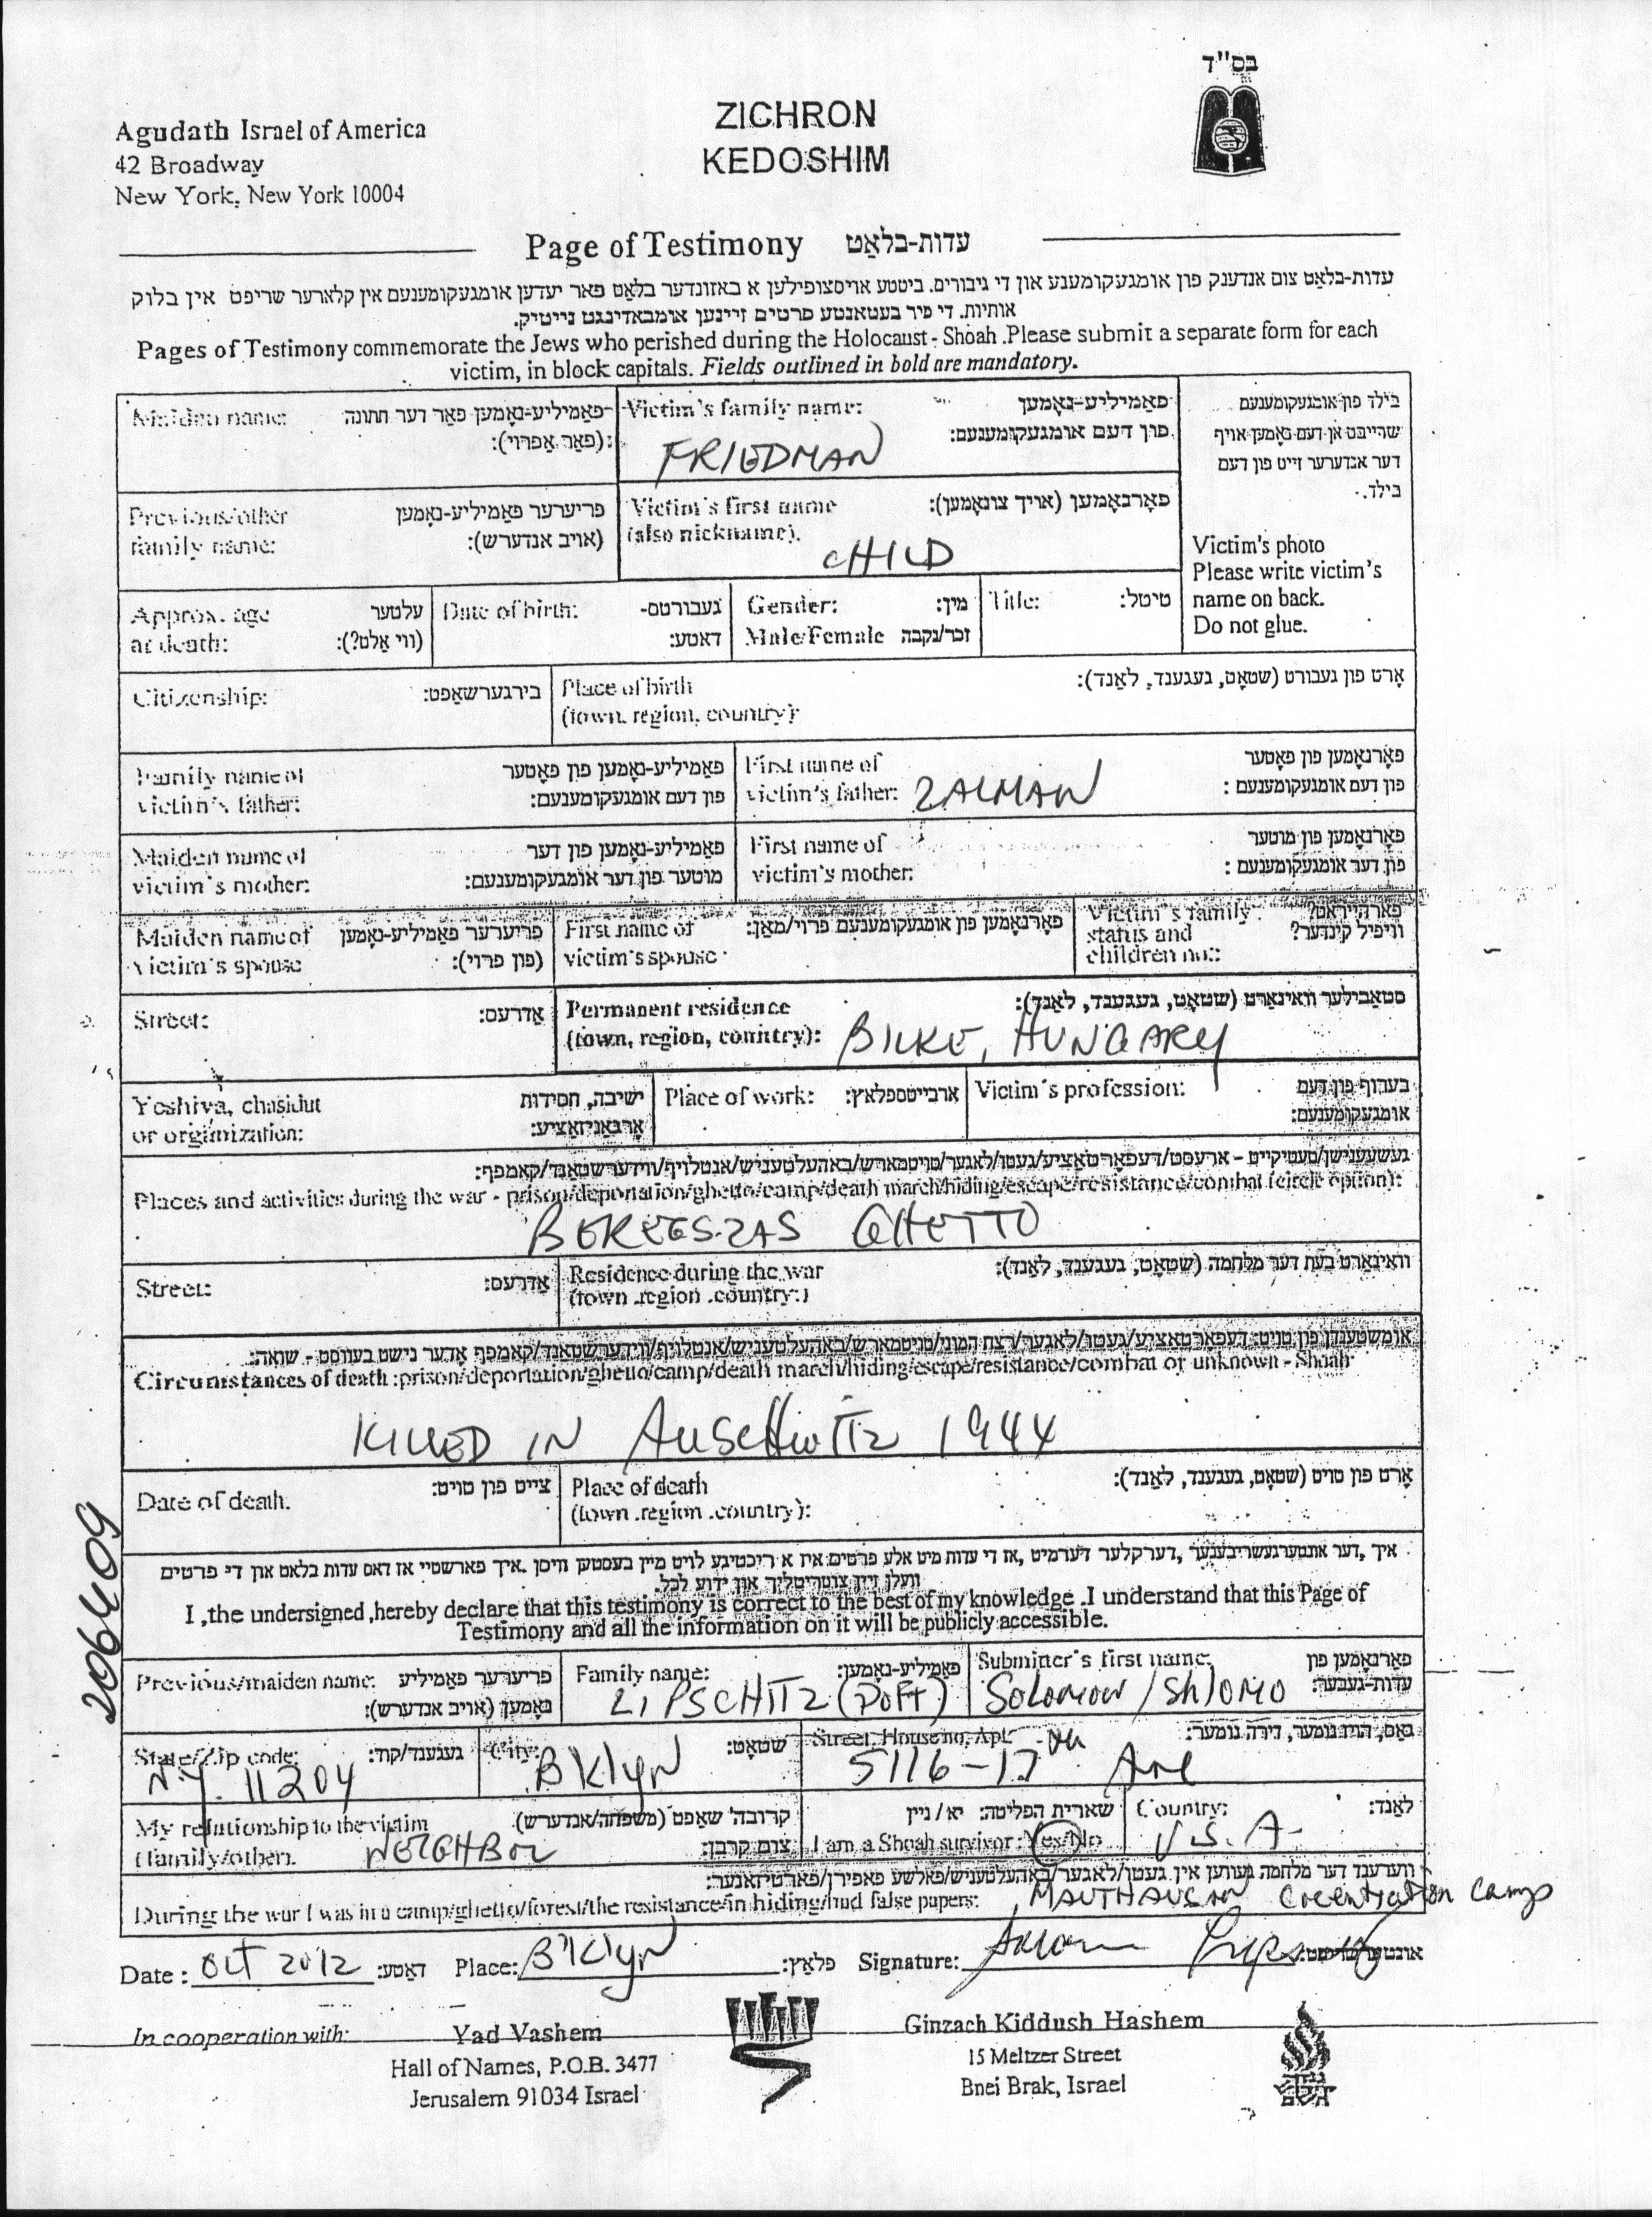 בס"ד
Agudath Israel of America
42 Broadway
New York, New York 10004
ZICHRON
KEDOSHIM
Page of Testimony עדות-בלאַט
עדות-בלאַט צום אנדענק פון אומגעקומענע און די גיבורים. ביטטע אויסצופילען א באזונדער בלאַט פאר יעדען אומגעקומענעם אין קלארער שריפט אין בלוק
אותיות. די פיר בעטאנטע פרטים זיינען אומבאדינגט נייטיק.
Pages of Testimony commemorate the Jews who perished during the Holocaust - Shoah .Please submit a separate form for each
victim, in block capitals. Fields outlined in bold are mandatory.
Maiden name: פאַמיליע-נאָמען פאר דער חתונה
(פאַר אַפרוי):
Victim's family name: פאַמיליע-נאָמען
פון דעם אומגעקומענעם:
FRIEDMAN
בילד פון אומגעקומענעם
שהייבט אָן דעם נאָמען אויף
דער אנדערער זייט פון דעם
בילד.
Previous/other פריערער פאַמיליע-נאָמען
family name: (אויב אנדערש):
Victim's first name פאָרנאָמען (אויך צונאָמען):
(also nickname).
CHILD
Victim's photo
Please write victim's
name on back.
Do not glue.
Approx. age עלטער
at death: (ווי אַלט?):
Date of birth: געבורטס-
דאטע:
Gender: מין:
Male/Female זכר/נקבה
Title: טיטל:
Citizenship: בירגערשאַפט:
Place of birth אָרט פון געבורט (שטאָט, געגענד, לאַנד):
(town, region, country):
Family name of פאַמיליע-נאָמען פון פאָטער
victim's father: פון דעם אומגעקומענעם:
First name of פאָרנאָמען פון פאָטער
victim's father: ZALMAN פון דעם אומגעקומענעם :
Maiden name of פאַמיליע-נאָמען פון דער
victim's mother: מוטער פון דער אומגעקומענעם:
First name of פאָרנאָמען פון מוטער
victim's mother: פון דער אומגעקומענעם :
Maiden name of פריערער פאַמיליע-נאָמען
victim's spouse (פון פרוי):
First name of פאָרנאָמען פון אומגעקומענעם פרוי/מאַן:
victim's spouse
Victim's family פארהייראט?
status and וויפיל קינדער?
children no.:
Street: אַדרעס:
Permanent residence סטאַבילער וואוינאָרט (שטאָט, געגענד, לאַנד):
(town, region, country): BILKE, HUNGARY
Yeshiva, chasidut ישיבה, חסידות
or organization: אָרגאַניזאַציע:
Place of work: ארבייטספלאַץ:
Victim's profession: בערוף פון דעם
אומגעקומענעם:
געשעענישן/טעטיקייט - ארעסט/דעפאָרטאַציע/געטו/לאַגער/טויטמארש/באהעלטעניש/אנטלויף/ווידערשטאַנד/קאמפף:
Places and activities during the war - prison/deportation/ghetto/camp/death march/hiding/escape/resistance/combat (circle option):
BEREGSZAS GHETTO
Street: אַדרעס:
Residence during the war וואוינאָרט בעת דער מלחמה (שטאָט, געגענד, לאַנד):
(town .region .country:)
אומשטענדן פון טויט: דעפאָרטאַציע/געטו/לאַגער/רצח המוני/טויטמארש/באהעלטעניש/אנטלויף/ווידערשטאנד/קאמפף אָדער נישט בעוואוסט - שואה:
Circumstances of death :prison/deportation/ghetto/camp/death march/hiding/escape/resistance/combat or unknown - Shoah
KILLED IN AuscHwiTz 1944
Date of death. צייט פון טויט:
Place of death אָרט פון טויט (שטאָט, געגענד, לאַנד):
(town .region .country):
206409
איך ,דער אונטערגעשריבענער ,דערקלער דערמיט ,אז די עדות מיט אלע פרטים איז א ריכטיגע לויט מיין בעסטען וויסן .איך פארשטיי אז דאס עדות בלאט און די פרטים
וועלן זיין צוטריטליך און ידוע לכל.
I ,the undersigned ,hereby declare that this testimony is correct to the best of my knowledge .I understand that this Page of
Testimony and all the information on it will be publicly accessible.
Previous/maiden name: פריערער פאַמיליע
נאָמען (אויב אנדערש):
Family name: פאַמיליע-נאָמען:
LIPSCHITZ (POFT)
Submitter's first name: פאָרנאָמען פון
עדות-געבער:
Solomon / Shlomo
State/Zip code: געגענד/קוד:
N.Y. 11204
City: שטאָט:
BKlyn
Street, House no, Apt. גאַס, הויז נומער, דירה נומער:
5116-17 Ave
My relationship to the victim קרובה' שאַפט (משפחה/אנדערש)
(family/other). NEIGHBOR צום קרבן:
שארית הפליטה: יא / ניין
I am a Shoah survivor: Yes/No
Country: לאַנד:
U.S.A.
ווערענד דער מלחמה געווען אין געטו/לאגער/באהעלטעניש/פאלשע פאפירן/פארטיזאנער:
During the war I was in a camp/ghetto/forest/the resistance/in hiding/had false papers: MAUTHAUSAN Concentration Camp
Date : Oct 2012 דאַטע: Place: BKlyn פּלאַץ: Signature:
In cooperation with: Yad Vashem
Hall of Names, P.O.B. 3477
Jerusalem 91034 Israel
Ginzach Kiddush Hashem
15 Meltzer Street
Bnei Brak, Israel